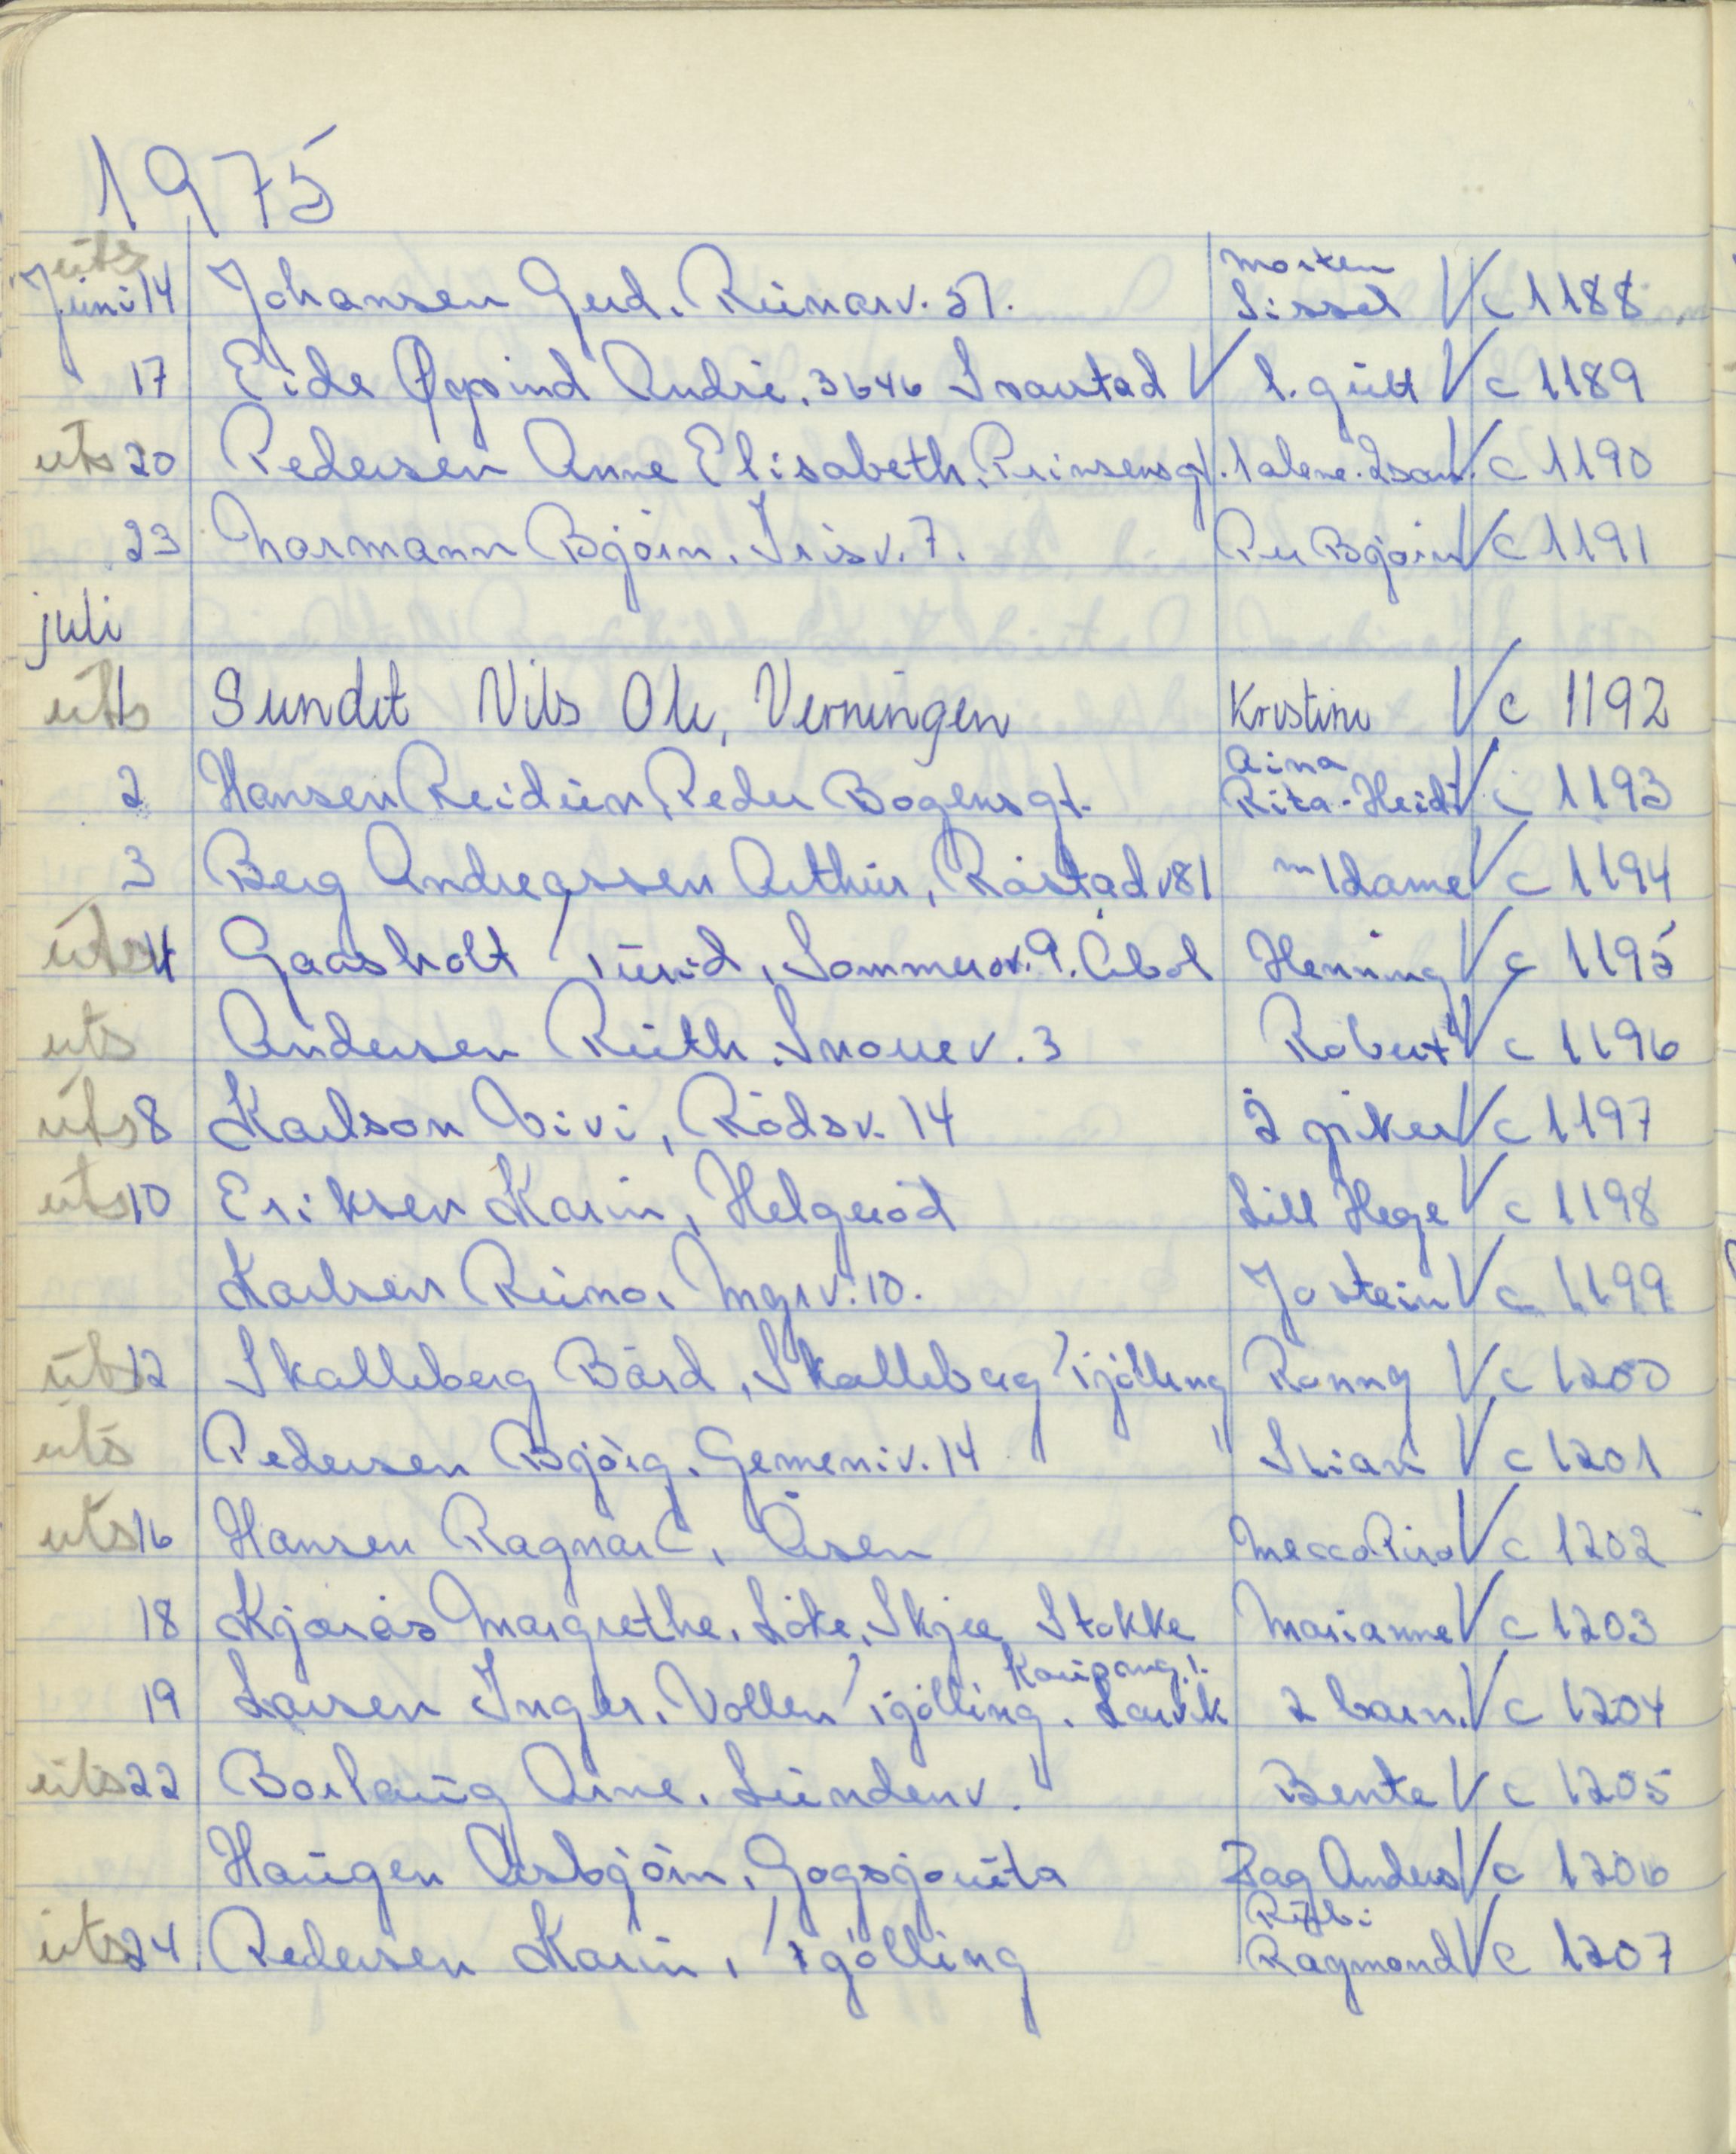 1975
uts
Juni 14 Johansen Gerd. Runarv. 57. Morten Sissel V c 1188
17 Eide Øyvind André. 3646 Svarstad V 1. gutt V c 1189
uts 20 Pedersen Anne Elisabeth, Prinsensgt. 1 alene. 2 sam. V c 1190
23 Marmann Bjørn. Irisv. 7. Per Bjørn V c 1191
juli
uts 1 Sundet Nils Ole, Verningen Kristine V c 1192
2 Hansen Reidun, Peder Bogensgt. Aina Rita-Heidi V c 1193
3 Berg Andreassen Arthur, Råstadv 81 m 1 dame V c 1194
uts 4 Gaasholt Turid, Sommerov. 9. Åbol Henning V c 1195
uts Andersen Ruth. Snorrev. 3 Robert V c 1196
uts 8 Karlson Vivi, Rødsv. 14 2 piker V c 1197
uts 10 Eriksen Karin, Helgerød Lill Hege V c 1198
Karlsen Runo, Myrv. 10. Jostein V c 1199
uts 12 Skalleberg Bård, Skalleberg Tjølling Ronny V c 1200
uts Pedersen Bjørg. Gemeniv. 14 Stian V c 1201
uts 16 Hansen Ragnar C, Åsen V c 1202
18 Kjærås Margrethe. Løke, Skjee, Stokke Marianne V c 1203
19 Larsen Inger. Vollen Tjølling. Kaupang. Larvik 2 barn. V c 1204
uts 22 Borlaug Arne. Lundenv. Bente V c 1205
Haugen Asbjørn. Gogsjøruta Dag Anders V c 1206
uts 24 Pedersen Karin, Tjølling Ragmond V c 1207